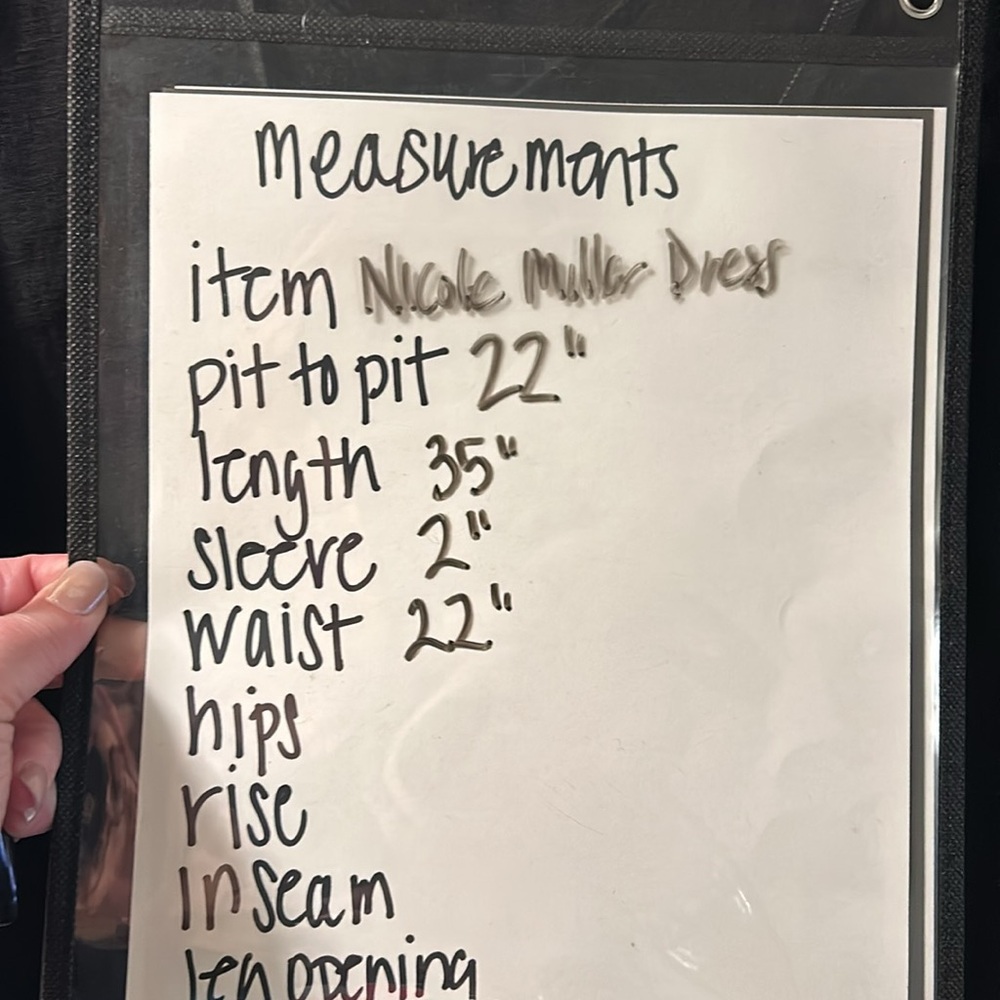 measurements
item Nicole Miller Dress
pit to pit 22"
length 35"
sleeve 2"
waist 22"
hips
rise
inseam
leg opening